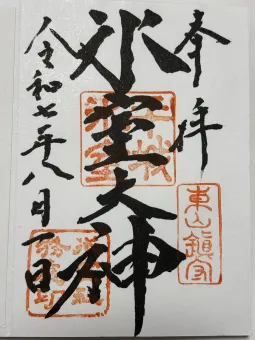 奉拝
氷室大神
令和七年八月一日
平城
氷室
東山鎮守